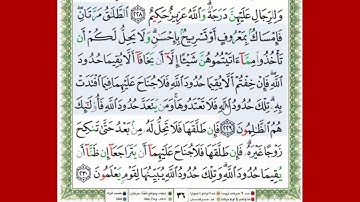 وَلِلرِّجَالِ عَلَيْهِنَّ دَرَجَةٌ وَاللَّهُ عَزِيزٌ حَكِيمٌ ٢٢٨ الطَّلَٰقُ مَرَّتَانِ
فَإِمْسَاكٌ بِمَعْرُوفٍ أَوْ تَسْرِيحٌ بِإِحْسَٰنٍ وَلَا يَحِلُّ لَكُمْ أَن
تَأْخُذُوا۟ مِمَّآ ءَاتَيْتُمُوهُنَّ شَيْـًٔا إِلَّآ أَن يَخَافَآ أَلَّا يُقِيمَا حُدُودَ
اللَّهِ فَإِنْ خِفْتُمْ أَلَّا يُقِيمَا حُدُودَ اللَّهِ فَلَا جُنَاحَ عَلَيْهِمَا فِيمَا افْتَدَتْ
بِهِ تِلْكَ حُدُودُ اللَّهِ فَلَا تَعْتَدُوهَا وَمَن يَتَعَدَّ حُدُودَ اللَّهِ فَأُو۟لَٰٓئِكَ
هُمُ الظَّٰلِمُونَ ٢٢٩ فَإِن طَلَّقَهَا فَلَا تَحِلُّ لَهُ مِنۢ بَعْدُ حَتَّىٰ تَنكِحَ
زَوْجًا غَيْرَهُ فَإِن طَلَّقَهَا فَلَا جُنَاحَ عَلَيْهِمَآ أَن يَتَرَاجَعَآ إِن ظَنَّآ أَن
يُقِيمَا حُدُودَ اللَّهِ وَتِلْكَ حُدُودُ اللَّهِ يُبَيِّنُهَا لِقَوْمٍ يَعْلَمُونَ ٢٣٠
٣٦